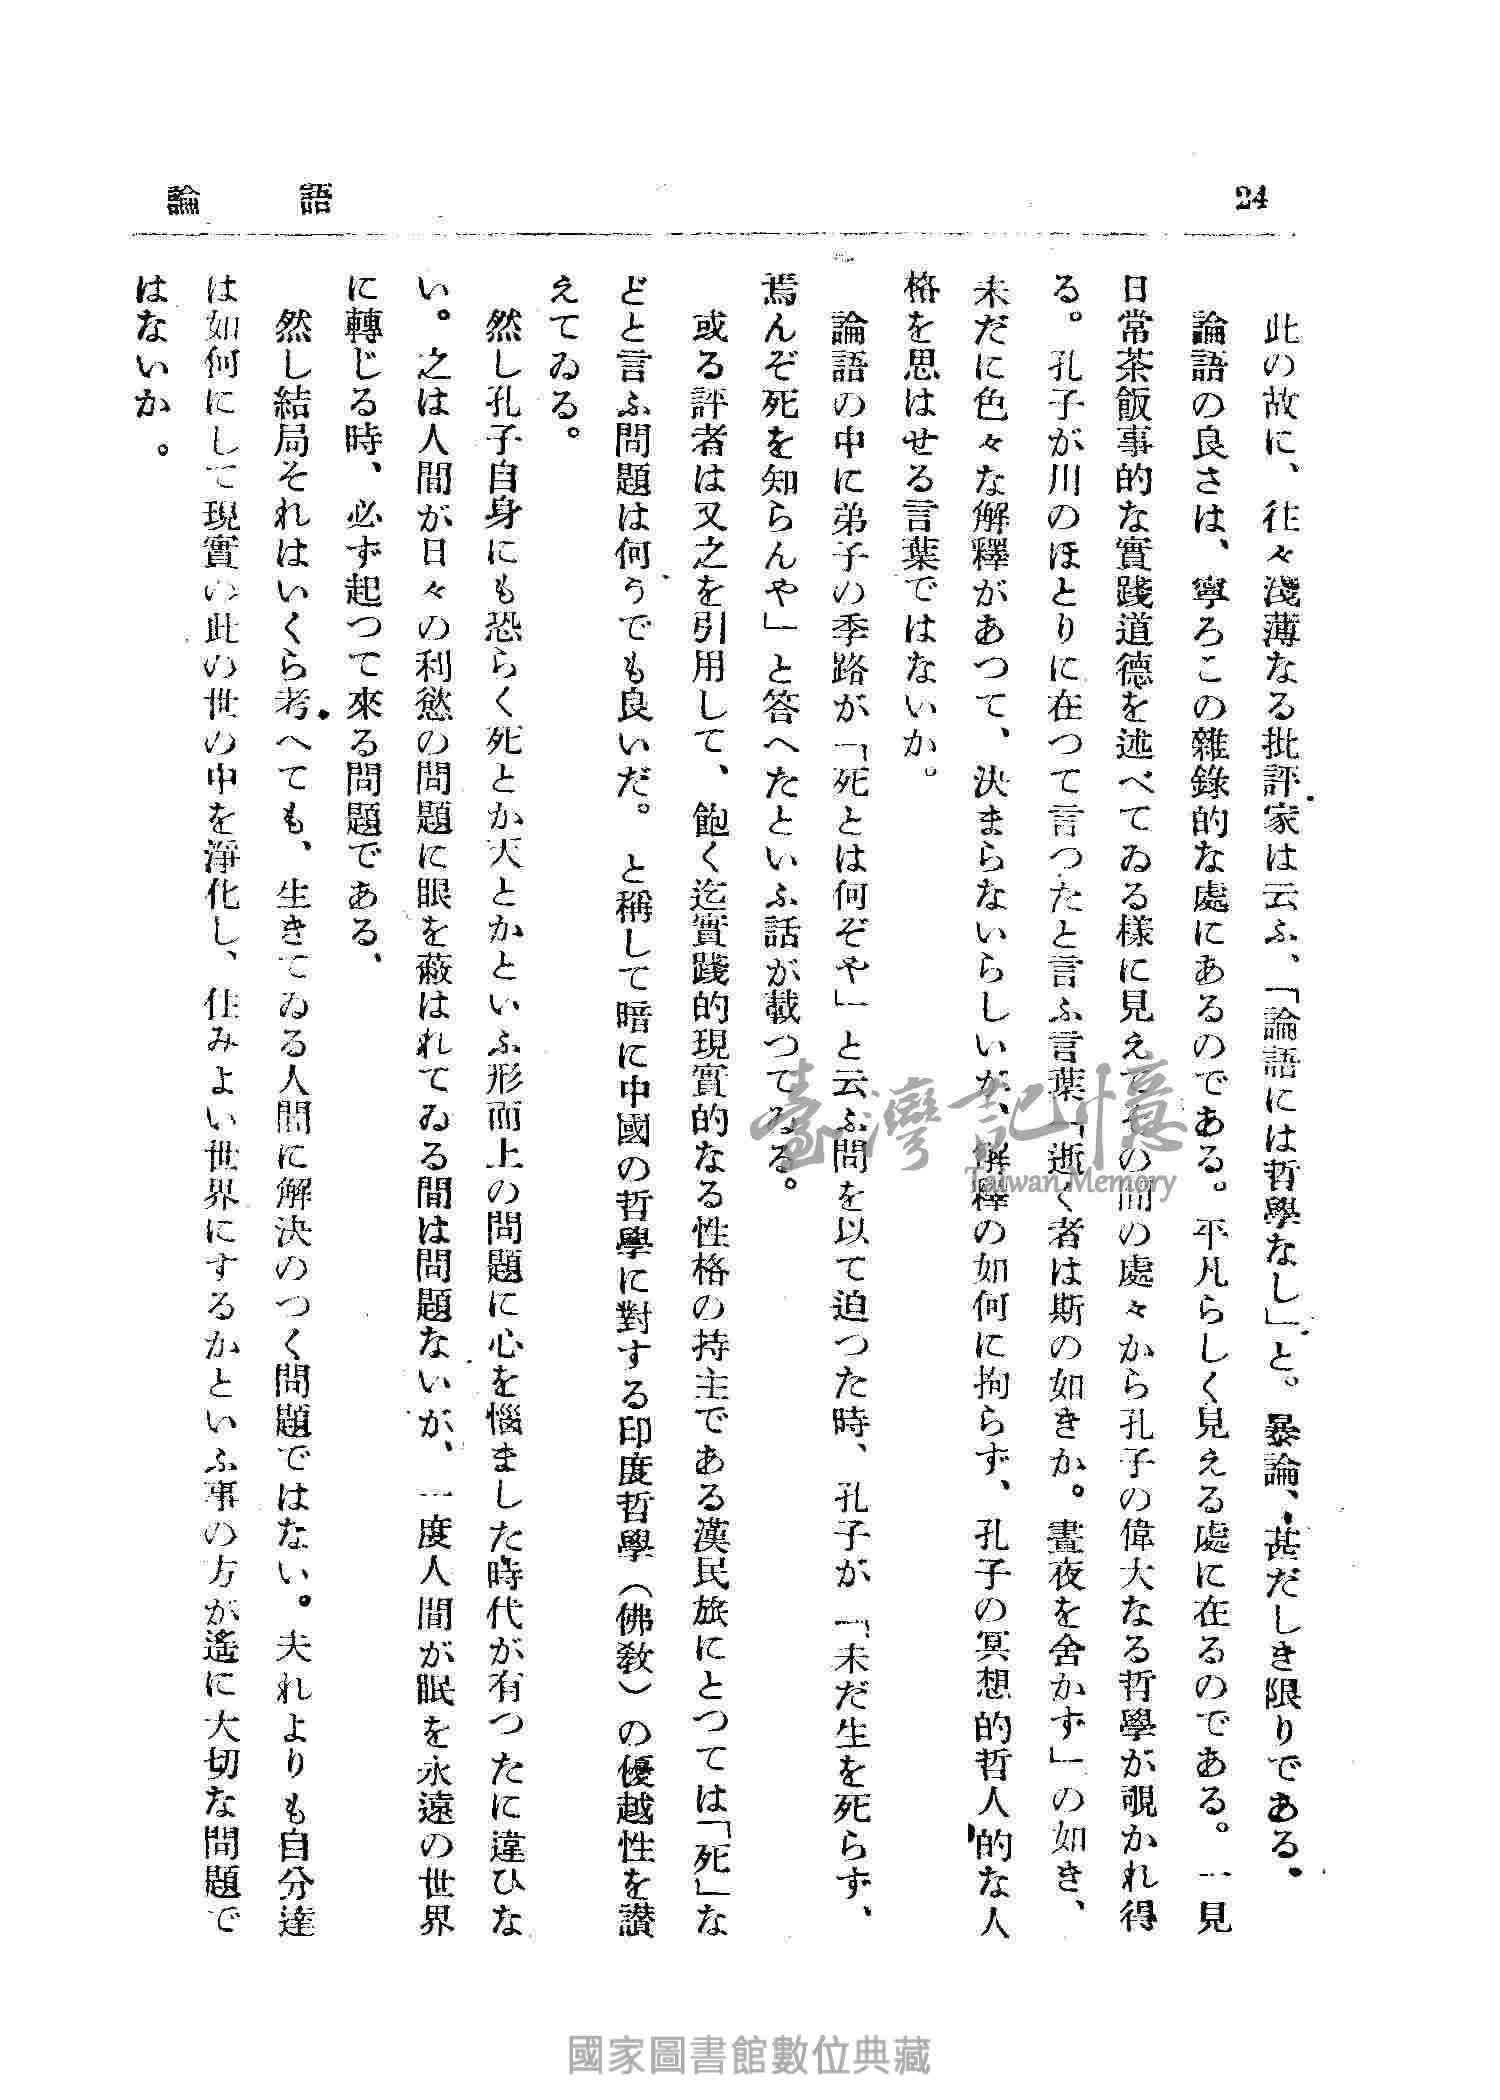 24
論語
此の故に、往々淺薄なる批評家は云ふ、「論語には哲學なし」と。暴論、甚だしき限りである。
論語の良さは、寧ろこの雜錄的な處にあるのである。平凡らしく見える處に在るのである。一見
日常茶飯事的な實踐道德を述べてゐる樣に見えてその間の處々から孔子の偉大なる哲學が覗かれ得
る。孔子が川のほとりに在つて言つたと言ふ言葉「逝く者は斯の如きか。晝夜を舍かず」の如き、
未だに色々な解釋があつて、決まらないらしいが、解釋の如何に拘らず、孔子の冥想的哲人的な人
格を思はせる言葉ではないか。
論語の中に弟子の季路が「死とは何ぞや」と云ふ問を以て迫つた時、孔子が「未だ生を死らず、
焉んぞ死を知らんや」と答へたといふ話が載つてゐる。
或る評者は又之を引用して、飽く迄實踐的現實的なる性格の持主である漢民旅にとつては「死」な
どと言ふ問題は何うでも良いだ。と稱して暗に中國の哲學に對する印度哲學（佛敎）の優越性を讃
えてゐる。
然し孔子自身にも恐らく死とか天とかといふ形而上の問題に心を惱ました時代が有つたに違ひな
い。之は人間が日々の利慾の問題に眼を蔽はれてゐる間は問題ないが、一度人間が眠を永遠の世界
に轉じる時、必ず起つて來る問題である、
然し結局それはいくら考へても、生きてゐる人間に解決のつく問題ではない。夫れよりも自分達
は如何にして現實の此の世の中を淨化し、住みよい世界にするかといふ事の方が遙に大切な問題で
はないか。
臺灣記憶
Taiwan Memory
國家圖書館數位典藏